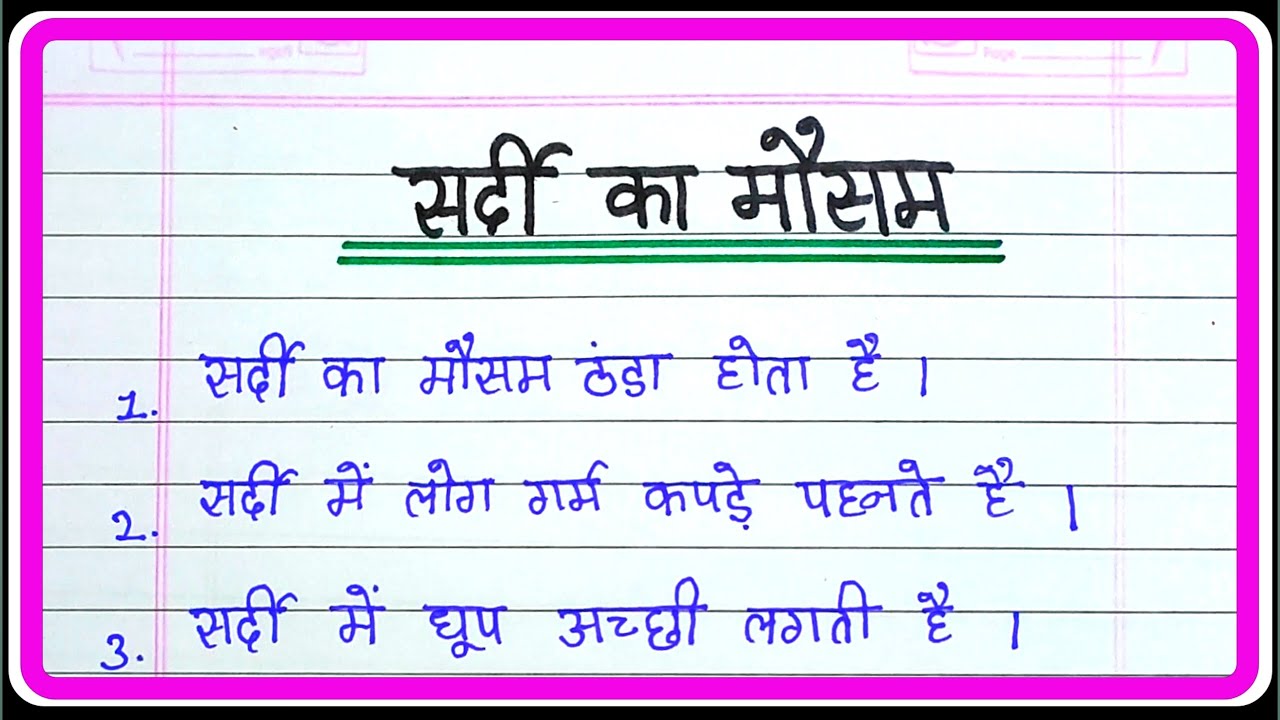 Page
सर्दी का मौसम
1. सर्दी का मौसम ठंडा होता है ।
2. सर्दी में लोग गर्म कपड़े पहनते है ।
3. सर्दी में धूप अच्छी लगती है ।